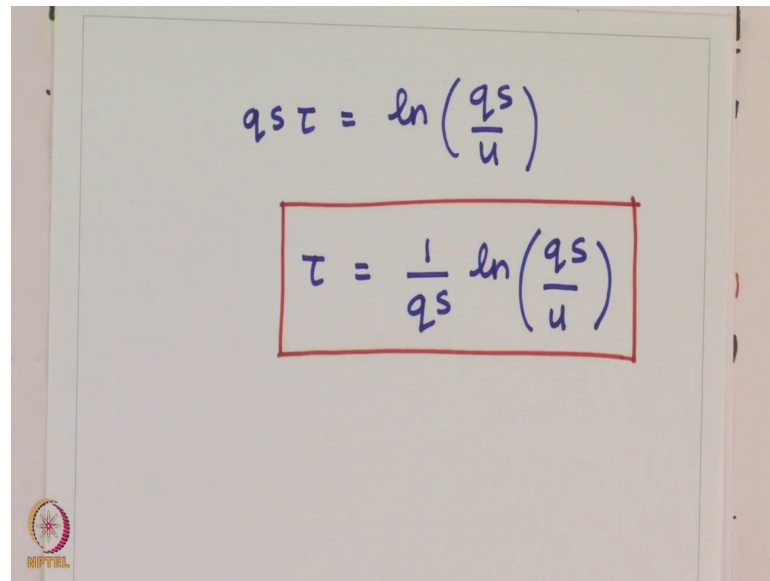 qsτ = ln(qs/u)
τ = 1/qs ln(qs/u)
NPTEL